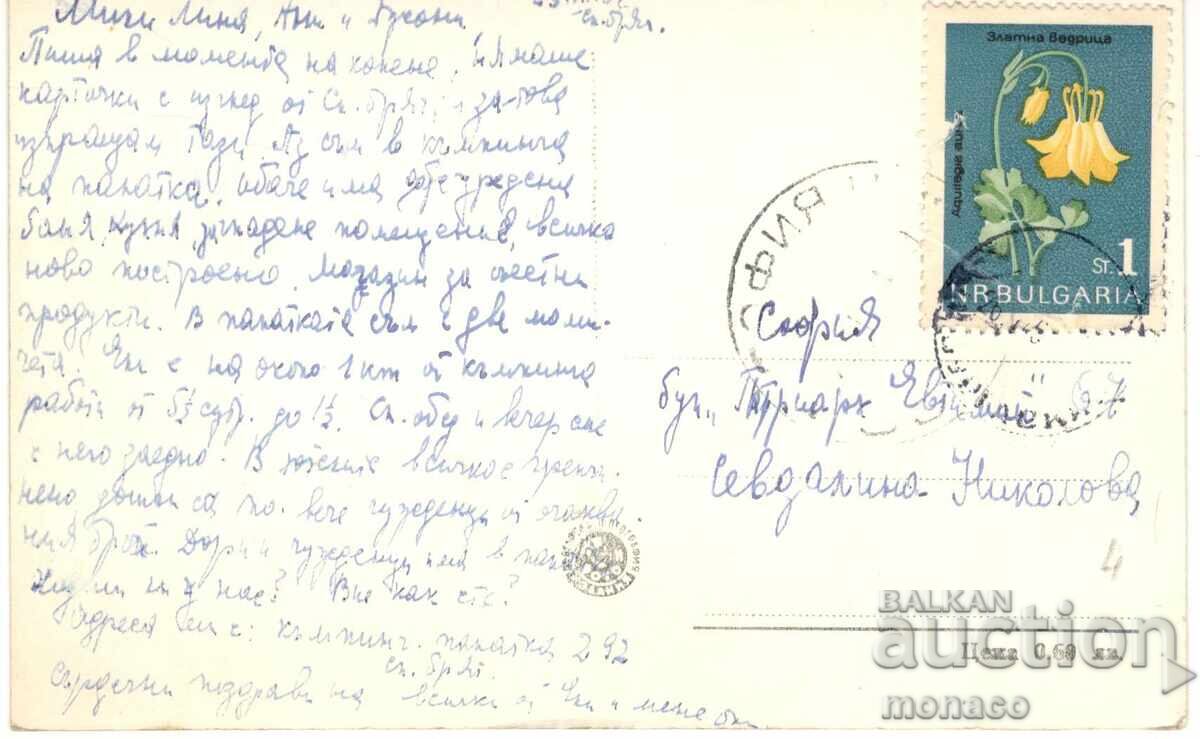 Мили Линя, Ани и
Сл. бряг.
Пиша в момента на копене, нямаше
картички с изглед от Сл. бряг и за-това
изпращам тази. Аз съм в къмпинга
на палатка, обаче има обзуредени
баня, кухня, за гладене помещение, всичко
ново построено, магазин за местни
продукти. В палатката съм с две моми-
чета. Яни е на около 1 км от къмпинга
работи от 5½ сутр. до 1½. Сл. обед и вечер сме
с него заедно. В хотелите всичко е препъл-
нено, дошли са по-вече чужденци от очаква-
ния брой. Дори и чужденци има в
у нас? Вие как сте?
Адреса ми е: къмпинг. палатка 292
сл. бряг.
Сърдечни поздрави на всички от Яни и мене
Златна ведрица
Aquilegia aurea
ST. 1
NR BULGARIA
СОФИЯ
София
бул. "Патриарх Евтимий"
Севдалина Николова
4
Цена 0,60 лв.
BALKAN
auction
monaco